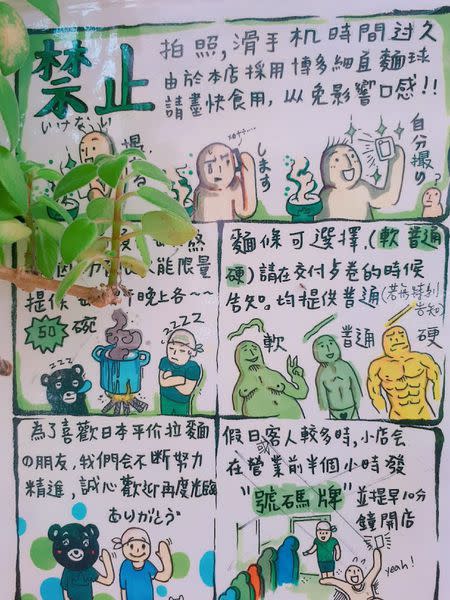 禁止
いけない
拍照,滑手机時間过久
由於本店採用博多細直麵球
請盡快食用,以免影響口感!!
撮
る
します
自分撮り
?
能限量
提供 晚上各~~
50碗
zzz
zzzz
麵條可選擇,(軟 普通
硬)請在交付步卷的時候
告知。均提供普通(若無特別
告知)
軟 普通 硬
為了喜歡日本平价拉麵
の朋友,我們会不断努力
精進,誠心歡迎再度光臨
ありがとう
假日客人較多時,小店会
或
在營業前半個小時發
"號碼牌" 並提早10分
鐘開店
yeah!